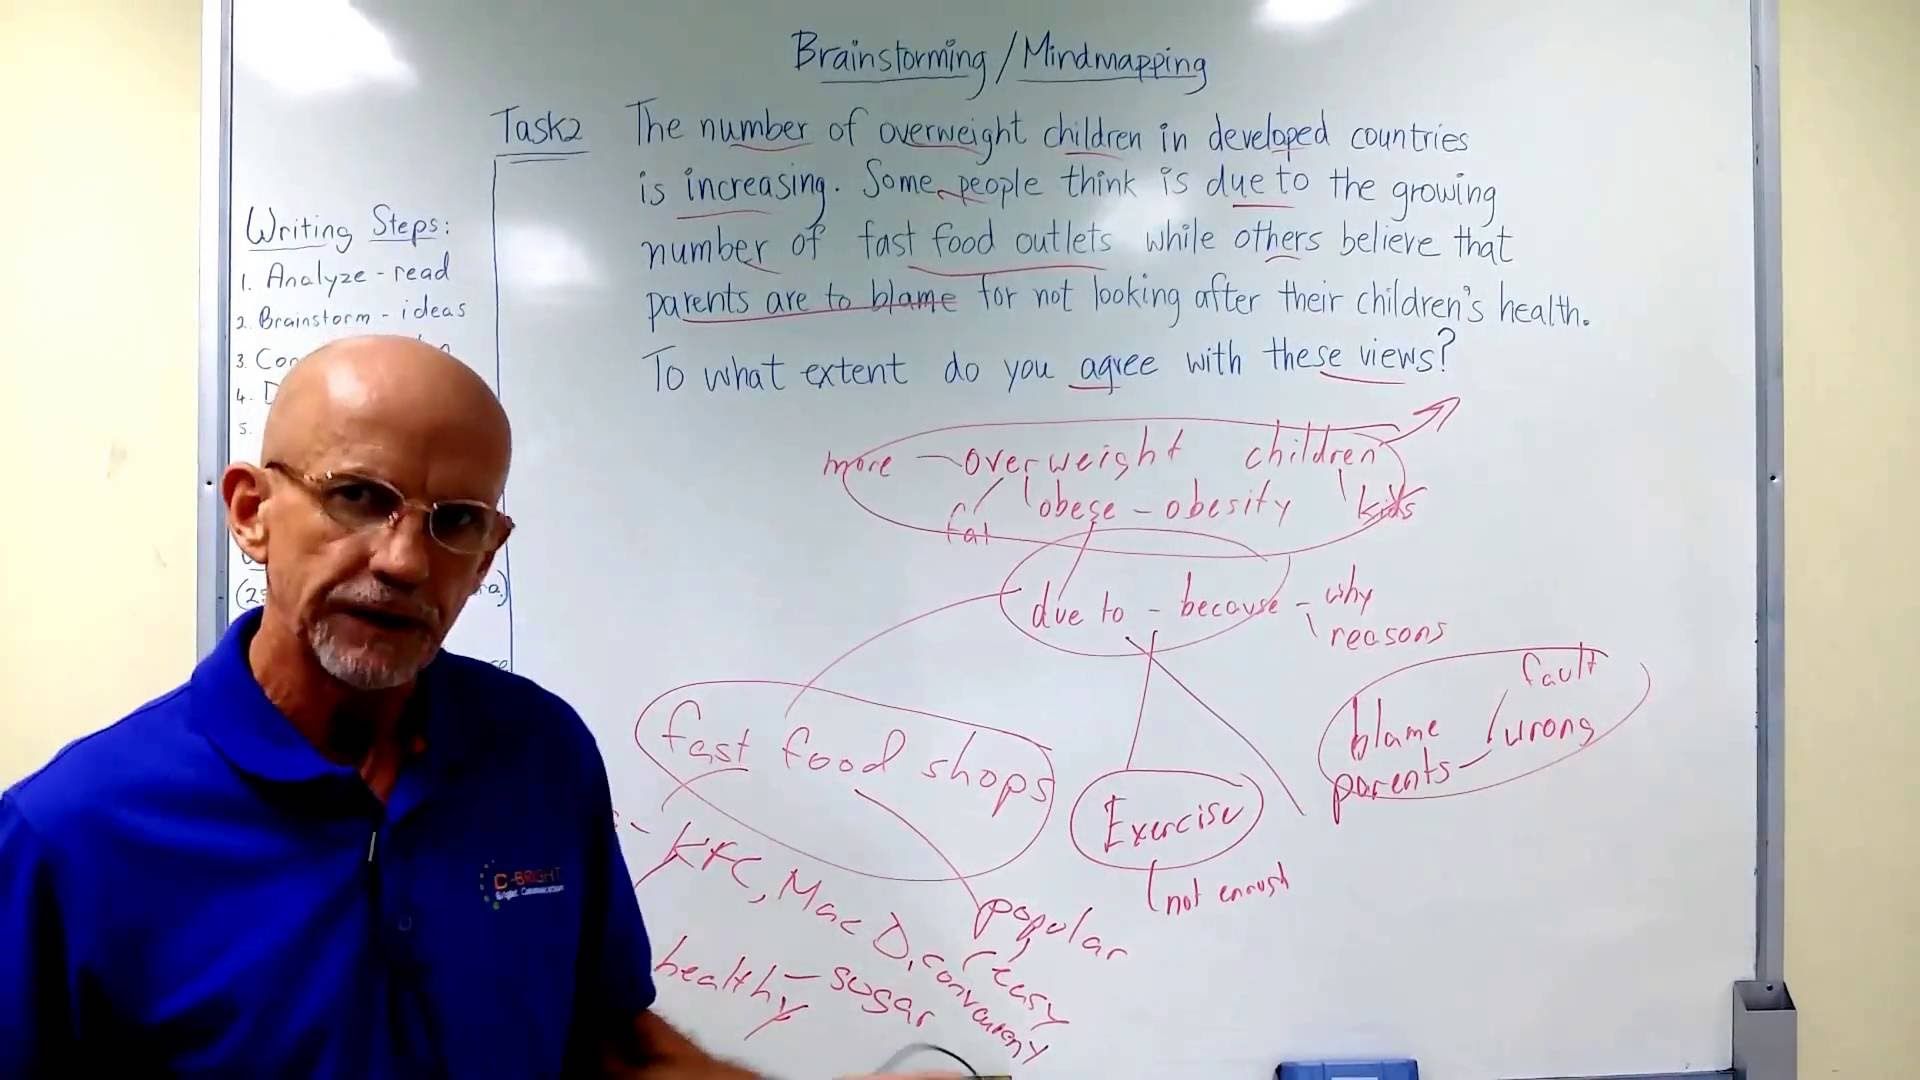 Brainstorming / Mindmapping
Task2 The number of overweight children in developed countries
is increasing. Some people think is due to the growing
number of fast food outlets while others believe that
parents are to blame for not looking after their children's health.
To what extent do you agree with these views?
Writing Steps:
1. Analyze - read
2. Brainstorm - ideas
3. Co
4. D
5.
(2
more - overweight children
fat obese - obesity kids
due to - because - why
reasons
fast food shops
Exercise
not enough
fault
blame wrong
parents
KFC, Mac D,
popular
easy
healthy - sugar
C-BRIGHT